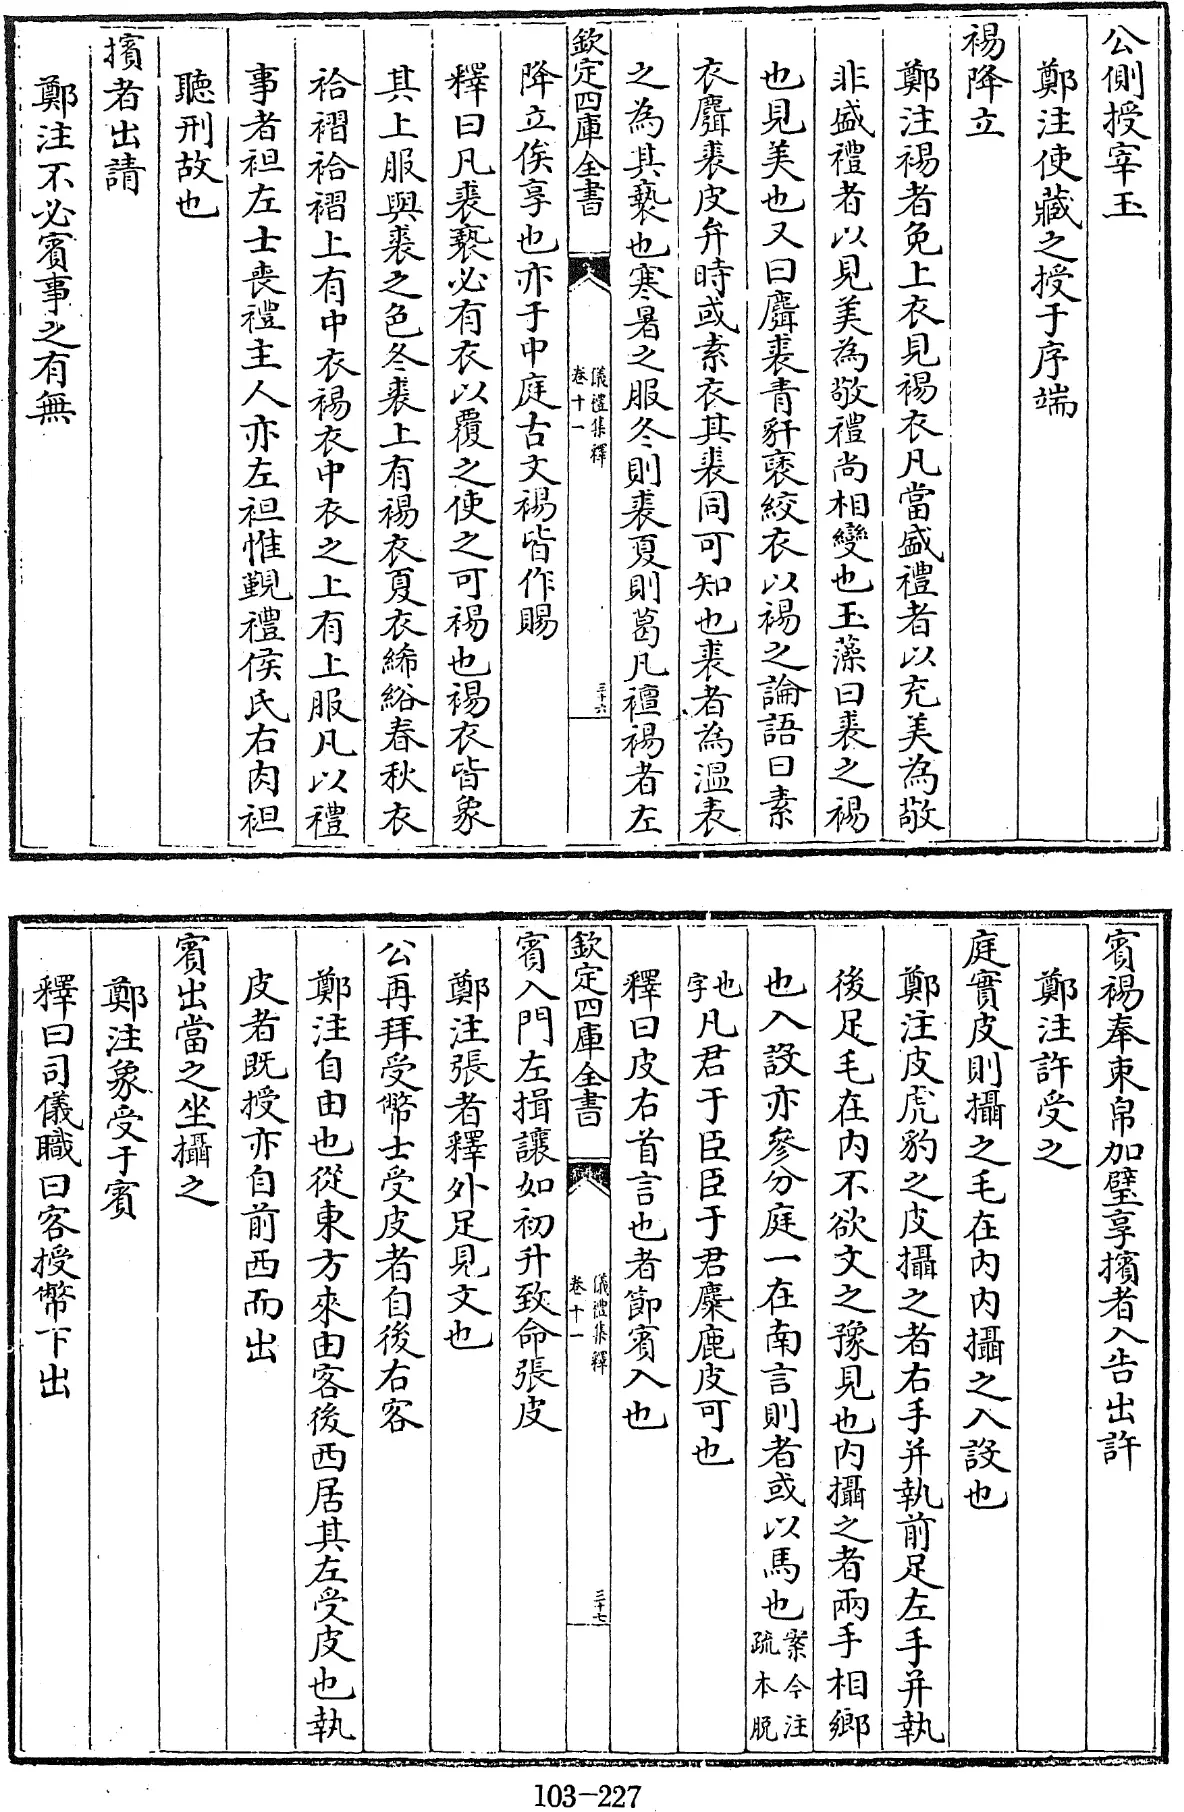 公側授宰玉
鄭注使藏之授于序端
裼降立
鄭注裼者免上衣見裼衣凡當盛禮者以充美為敬
非盛禮者以見美為敬禮尚相變也玉藻曰裘之裼
也見美也又曰麛裘青豻褎絞衣以裼之論語曰素
衣麛裘皮弁時或素衣其裘同可知也裘者為温表
之為其褻也寒暑之服冬則裘夏則葛凡襢裼者左
欽定四庫全書
儀禮集釋
卷十一
三十六
降立俟享也亦于中庭古文裼皆作賜
釋曰凡裘褻必有衣以覆之使之可裼也裼衣皆象
其上服與裘之色冬裘上有裼衣夏衣絺綌春秋衣
袷褶袷褶上有中衣裼衣中衣之上有上服凡以禮
事者袒左士喪禮主人亦左袒惟覲禮侯氏右肉袒
聽刑故也
擯者出請
鄭注不必賓事之有無
賓裼奉束帛加璧享擯者入告出許
鄭注許受之
庭實皮則攝之毛在内内攝之入設也
鄭注皮虎豹之皮攝之者右手并執前足左手并執
後足毛在内不欲文之豫見也内攝之者兩手相鄉
也入設亦參分庭一在南言則者或以馬也案今注疏本脱
也字凡君于臣臣于君麋鹿皮可也
釋曰皮右首言也者節賓入也
欽定四庫全書
儀禮集釋
卷十一
三十七
賓入門左揖讓如初升致命張皮
鄭注張者釋外足見文也
公再拜受幣士受皮者自後右客
鄭注自由也從東方來由客後西居其左受皮也執
皮者既授亦自前西而出
賓出當之坐攝之
鄭注象受于賓
釋曰司儀職曰客授幣下出
103-227